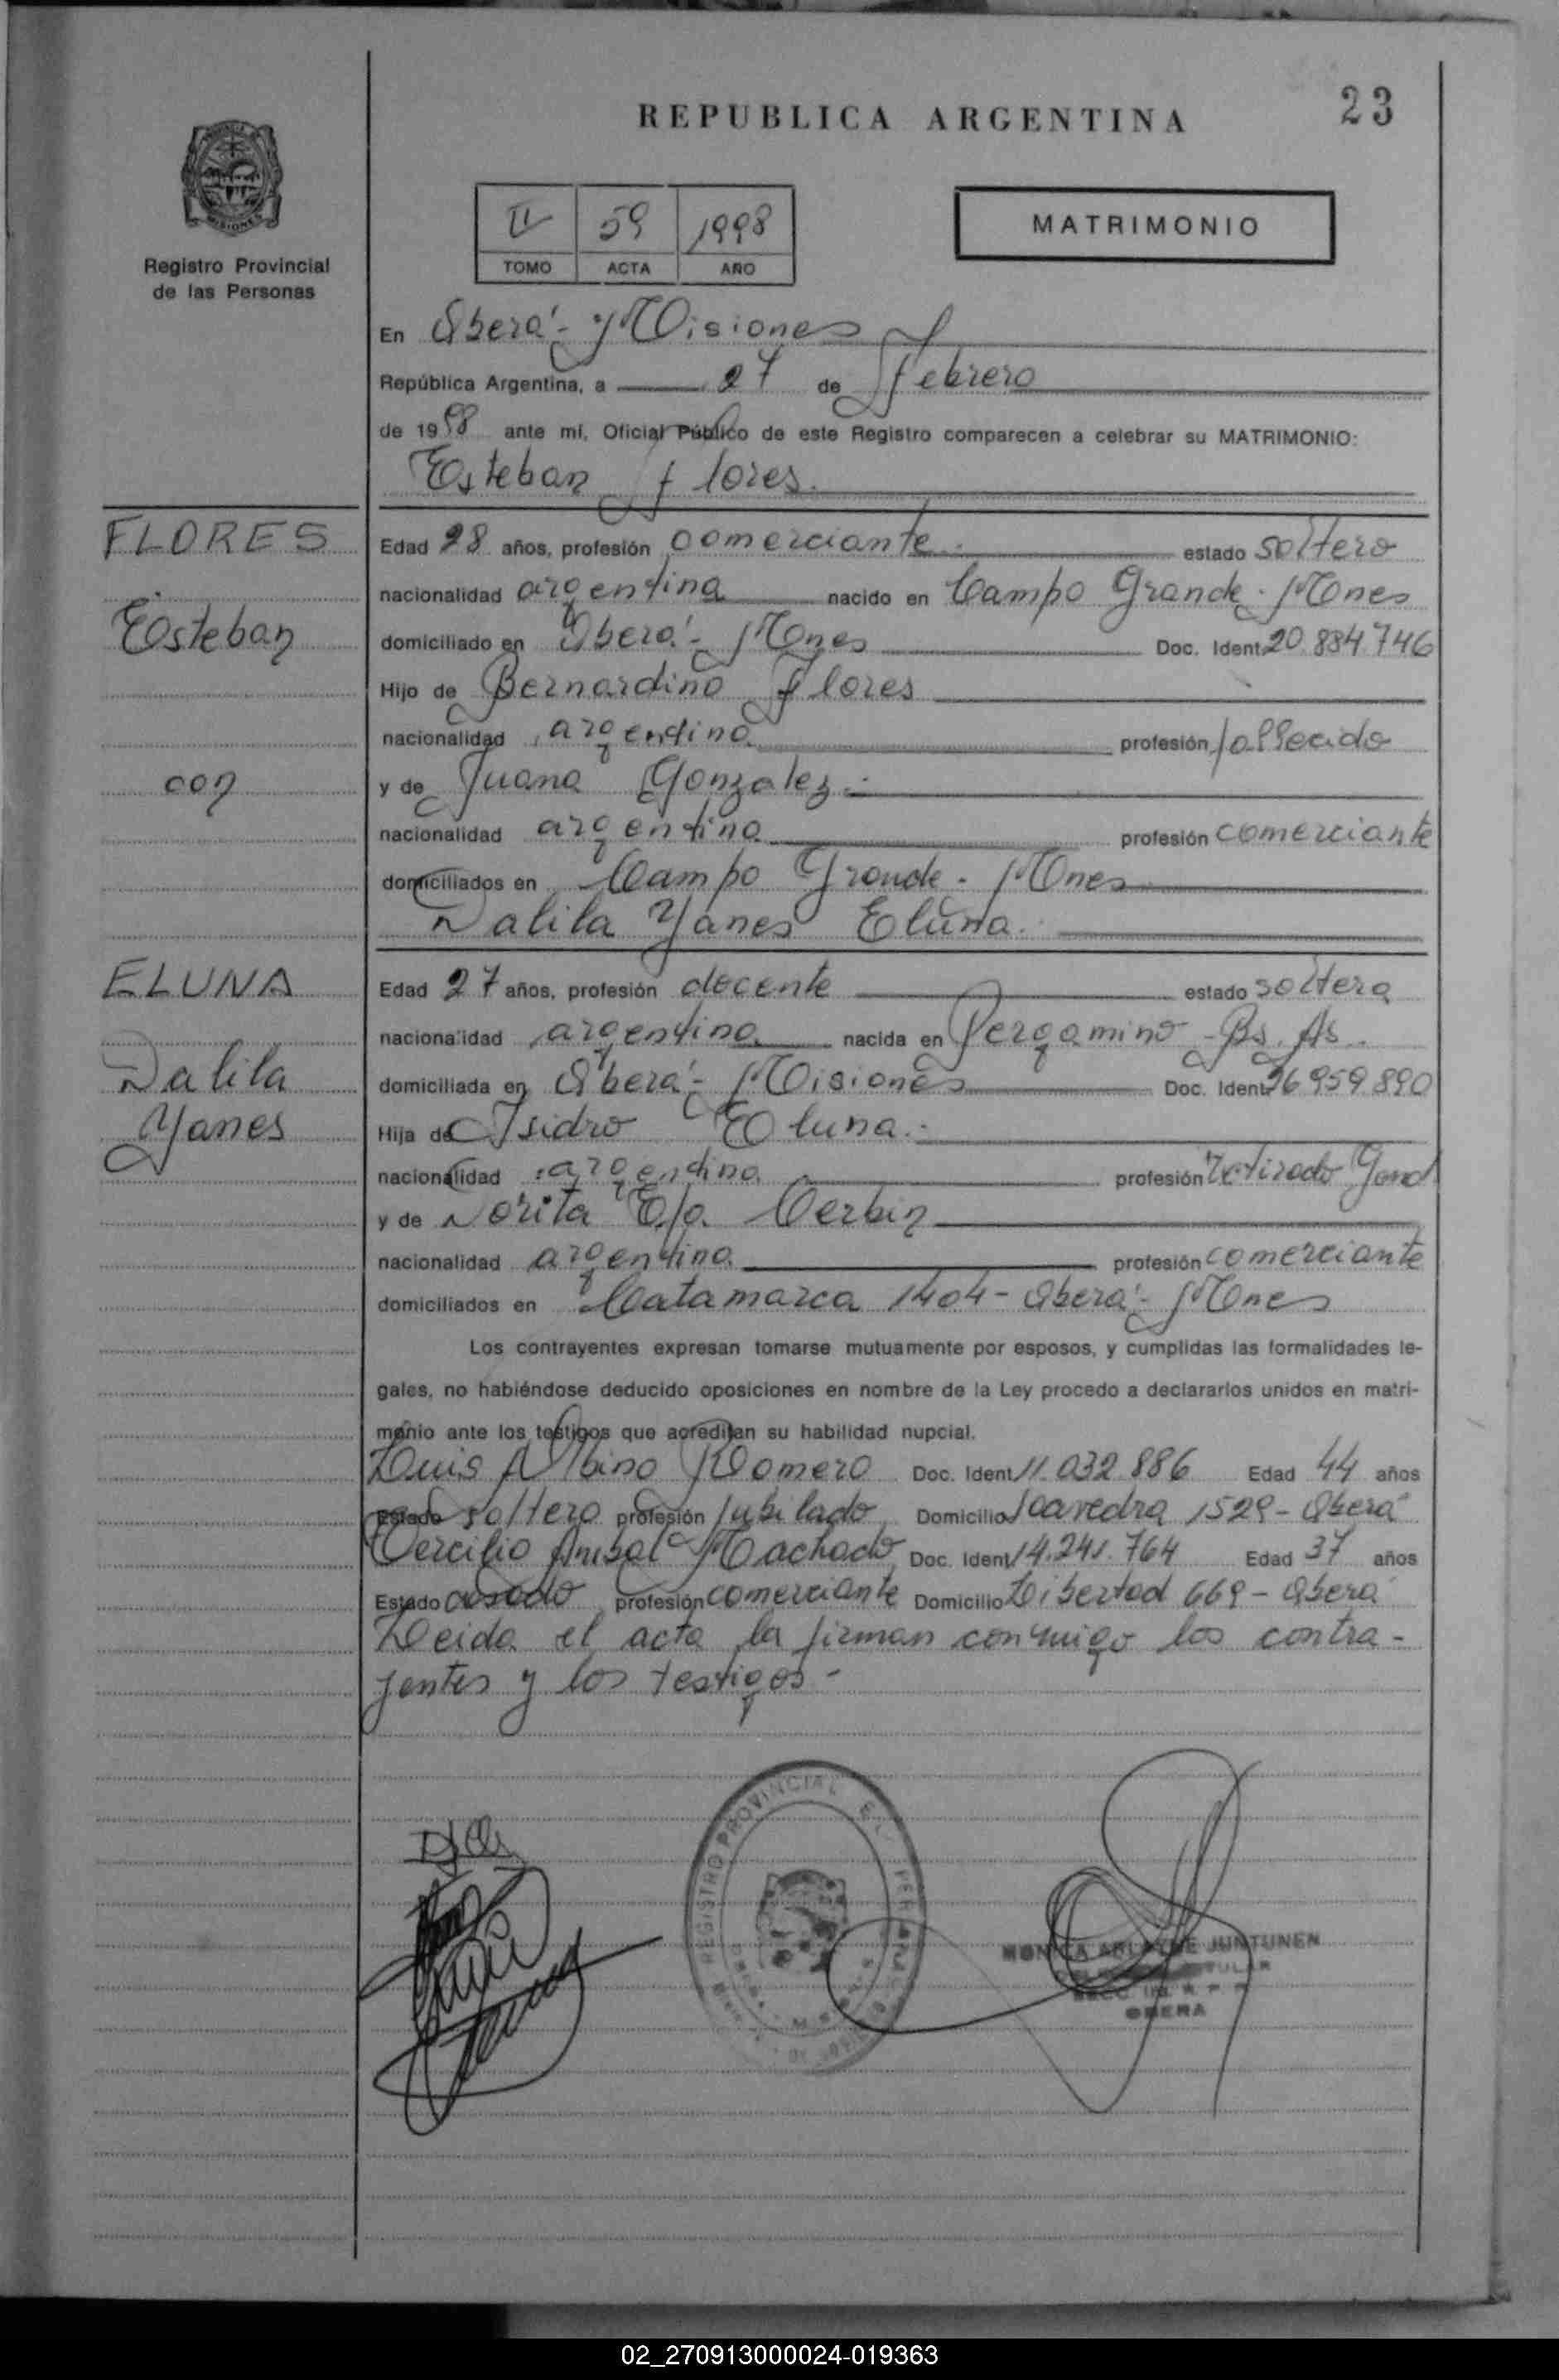 REPUBLICA ARGENTINA
23
II
59
1998
TOMO
ACTA
AÑO
MATRIMONIO
MISIONES
Registro Provincial
de las Personas
En Oberá - Misiones
República Argentina, a 27 de Febrero
de 1998 ante mí, Oficial Público de este Registro comparecen a celebrar su MATRIMONIO:
Esteban Flores.
FLORES
Esteban
con
Edad 28 años, profesión comerciante.- estado soltero
nacionalidad argentina nacido en Campo Grande - Mnes
domiciliado en Oberá - Mnes Doc. Ident. 20.884.746
Hijo de Bernardino Flores
nacionalidad argentina profesión fallecido
y de Juana Gonzalez.-
nacionalidad argentina profesión comerciante
domiciliados en Campo Grande - Mnes
Dalila Yanes Eluna.
ELUNA
Dalila
Yanes
Edad 27 años, profesión docente estado soltera
nacionalidad argentina nacida en Pergamino - Bs. As.
domiciliada en Oberá - Misiones Doc. Ident. 26.959.890
Hija de Isidro Eluna.-
nacionalidad argentina profesión retirado Gend
y de Norita Cerbin
nacionalidad argentina profesión comerciante
domiciliados en Catamarca 1404 - Oberá - Mnes
Los contrayentes expresan tomarse mutuamente por esposos, y cumplidas las formalidades le-
gales, no habiéndose deducido oposiciones en nombre de la Ley procedo a declararlos unidos en matri-
monio ante los testigos que acreditan su habilidad nupcial.
Luis Albino Romero Doc. Ident. 11.032.886 Edad 44 años
Estado soltero profesión jubilado Domicilio Saavedra 1529 - Oberá
Vercilio Anibal Machado Doc. Ident. 14.241.764 Edad 37 años
Estado casado profesión comerciante Domicilio Libertad 669 - Oberá
Leida el acta la firman conmigo los contra-
yentes y los testigos -
REGISTRO PROVINCIAL
JUNTUNEN
OBERA
02_270913000024-019363